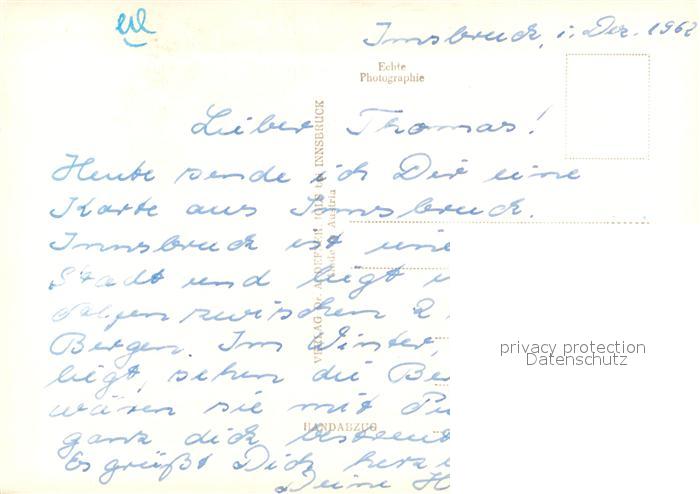 Innsbruck, i. Dez. 1962
Echte
Photographie
Lieber Thomas!
Heute sende ich Dir eine
Karte aus Innsbruck.
Innsbruck ist eine
Stadt und liegt
zwischen 2
Bergen. Im Winter,
liegt, sehen die Be
wären sie mit Pu
ganz dick bestreut
Es grüßt Dich herz
Deine H
VERLAG Dr. ADOLF bei INNSBRUCK
Austria
HANDABZUG
privacy protection
Datenschutz